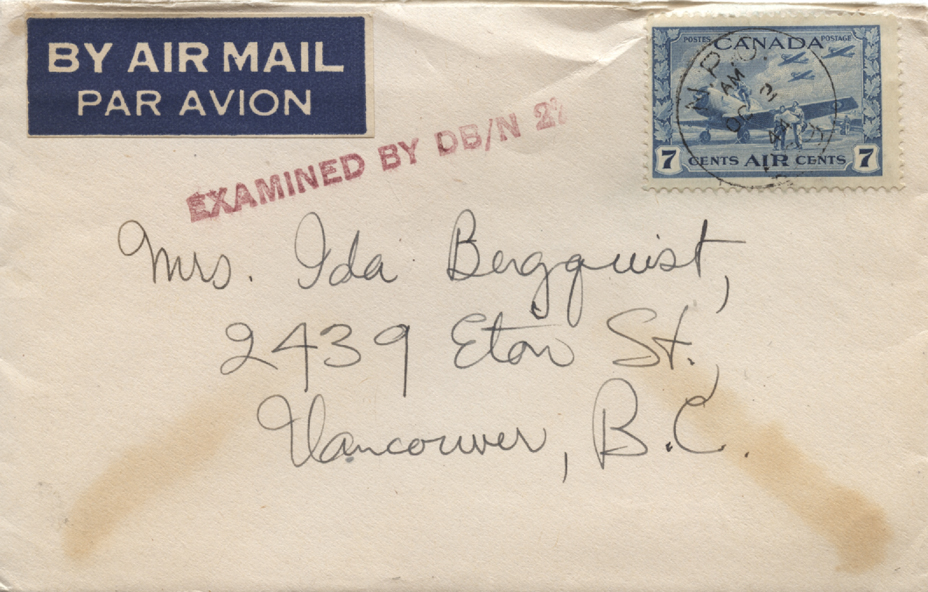 BY AIR MAIL
PAR AVION
EXAMINED BY DB/N
POSTES CANADA POSTAGE
AM
7 CENTS AIR CENTS 7
Mrs. Ida Bergquist,
2439 Eton St.,
Vancouver, B.C.